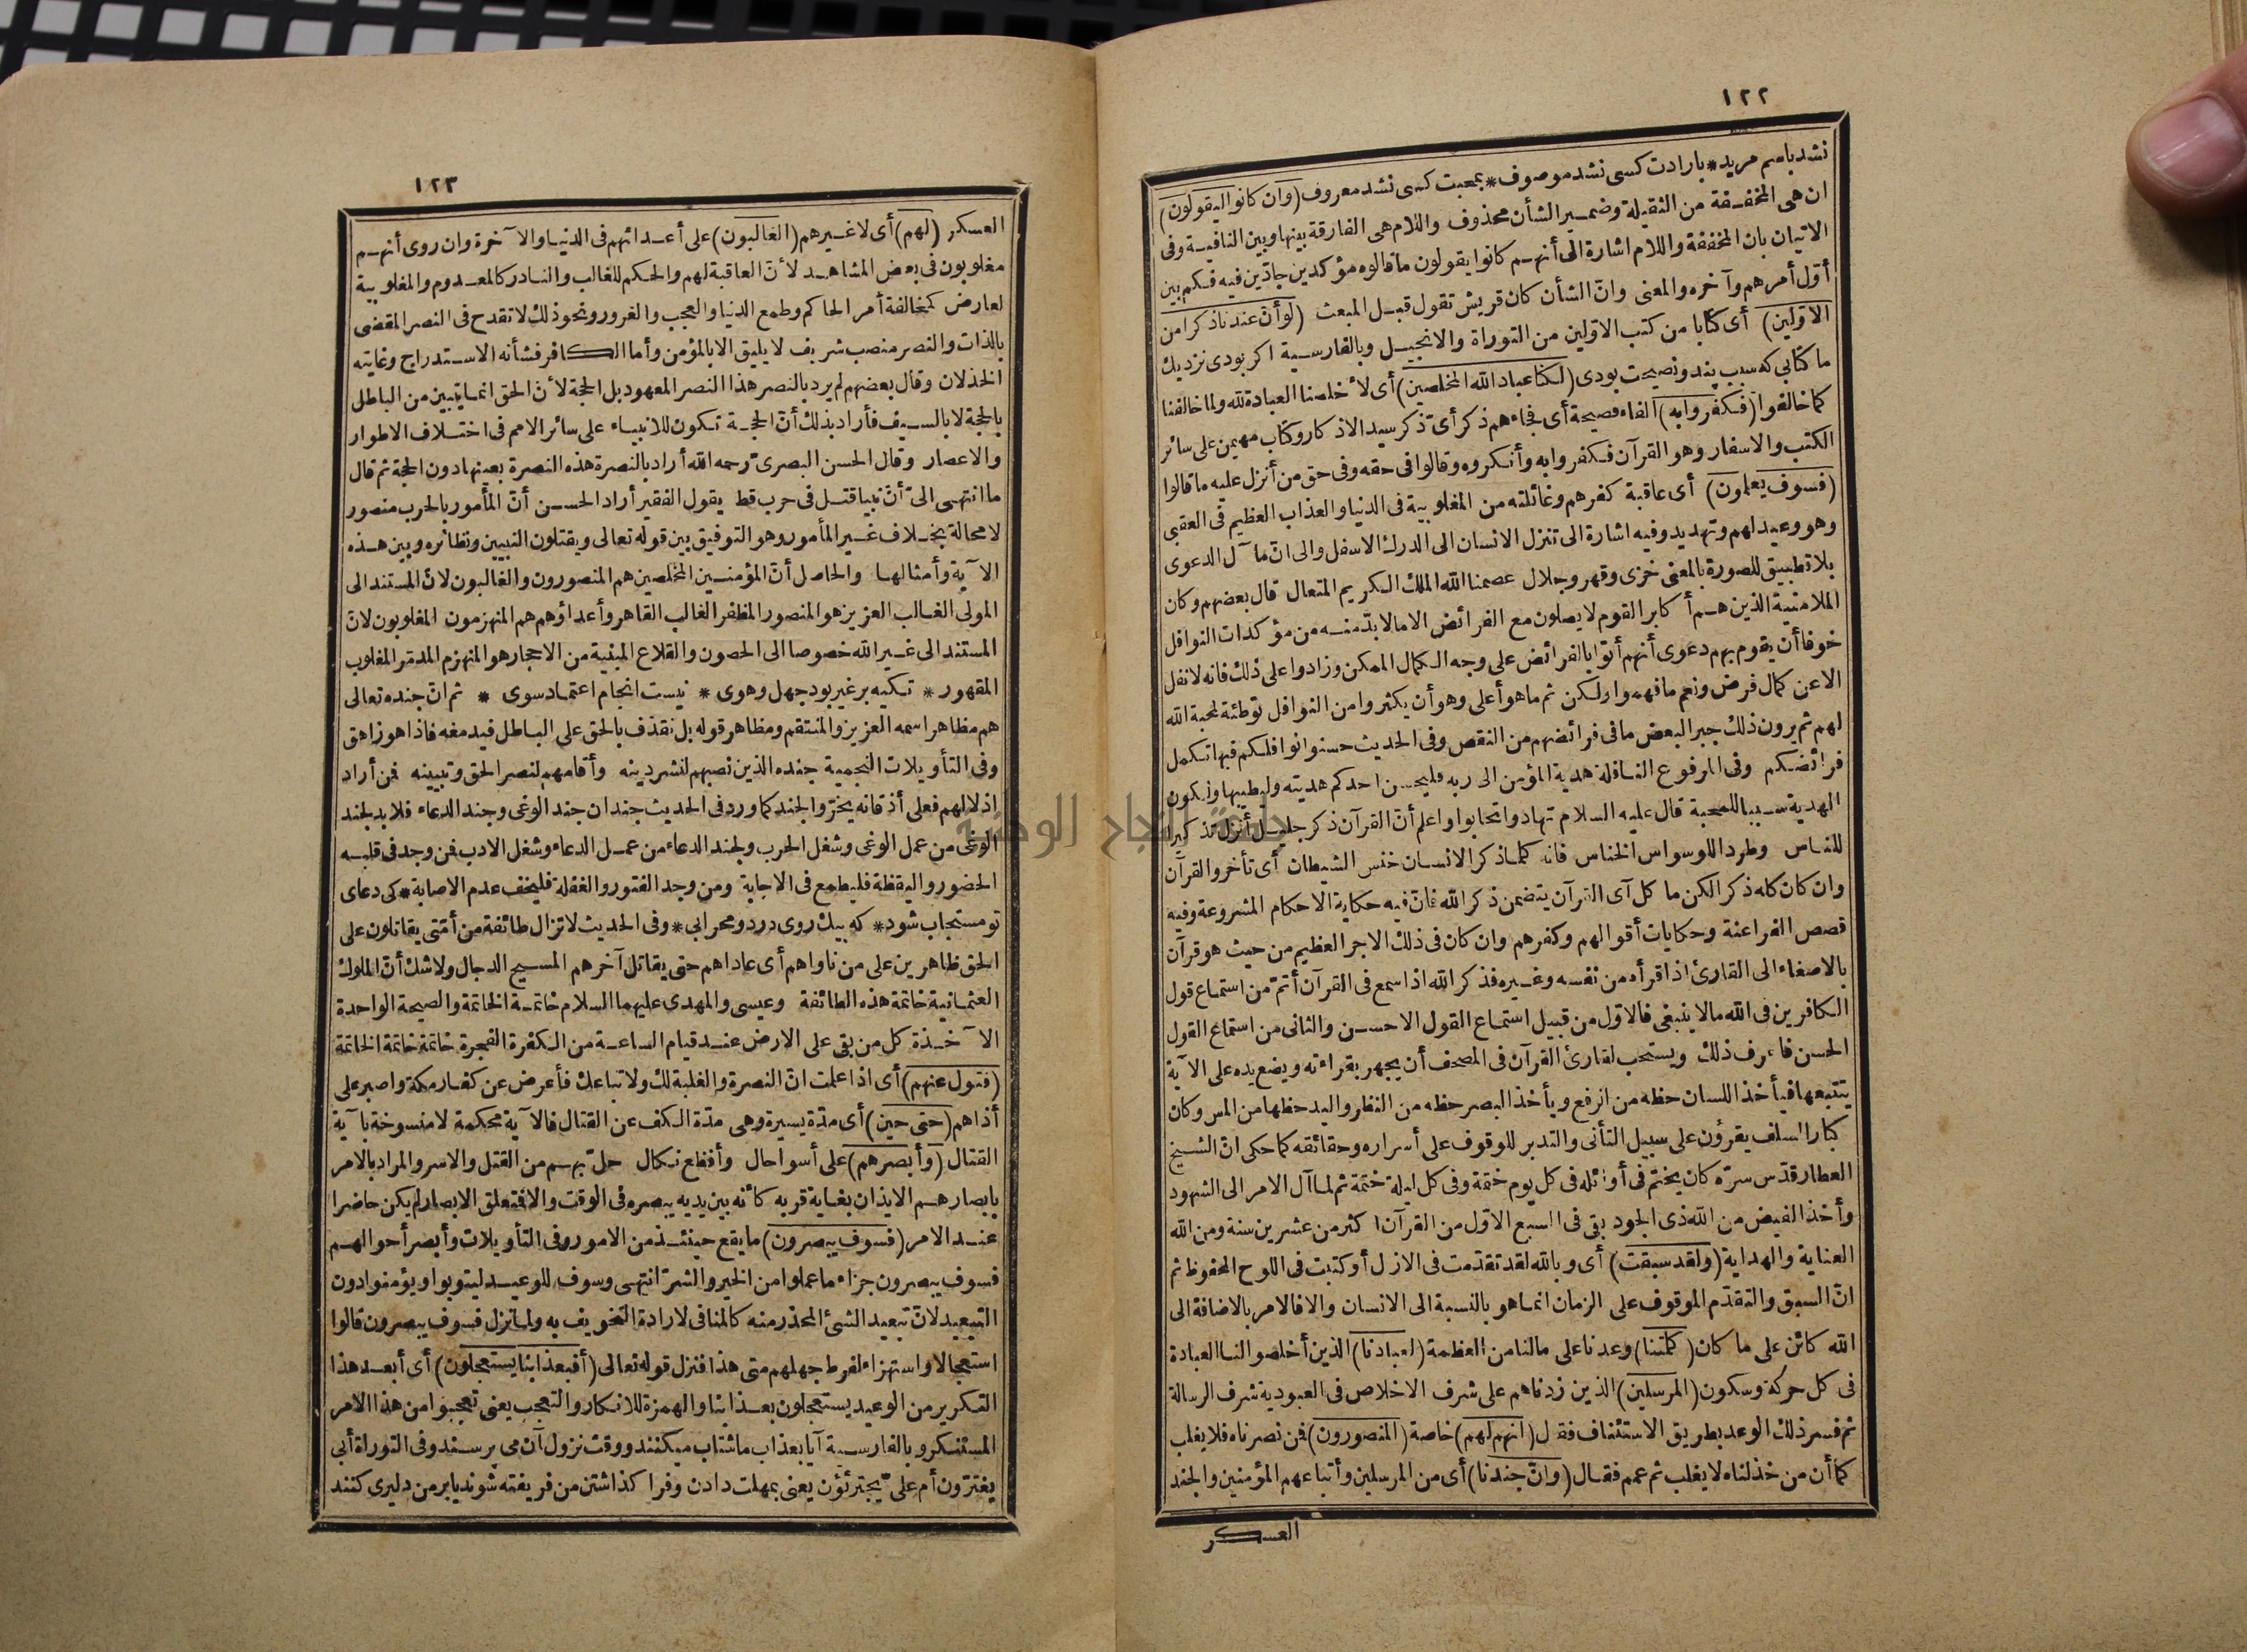 ١٢٢
نشد باسم مريد * بارادت كسى نشد موصوف * بمحبت كسى نشد معروف (وان كانوا ليقولون)
ان هى المخففة من الثقيلة وضمير الشأن محذوف واللام هى الفارقة بينها وبين النافية وفى
الاتيان بان المخففة واللام اشارة الى أنهم كانوا يقولون ما قالوه مؤكدين جادّين فيه فكم بين
أوّل أمرهم وآخره والمعنى وانّ الشأن كان قريش تقول قبل المبعث (لوأنّ عندنا ذكرا من
الاوّلين) أى كتابا من كتب الاوّلين من التوراة والانجيل وبالفارسية اكر بودى نزديك
ما كتابى كه سبب پند ونصيحت بودى (لكنّا عباد الله المخلصين) أى لأخلصنا العبادة لله ولما خالفنا
كما خالفوا (فكفروا به) الفاء فصيحة أى فجاءهم ذكر أىّ ذكر سيد الاذكار وكتاب مهيمن على سائر
الكتب والاسفار وهو القرآن فكفروا به وأنكروه وقالوا فى حقه وفى حق من أنزل عليه ما قالوا
(فسوف يعلمون) أى عاقبة كفرهم وغائلته من المغلوبية فى الدنيا والعذاب العظيم فى العقبى
وهو وعيد لهم وتهديد وفيه اشارة الى تنزل الانسان الى الدرك الاسفل والى انّ مآل الدعوى
بلا تطبيق للصورة بالمعنى خزى وقهر وجلال عصمنا الله الملك الكريم المتعال قال بعضهم وكان
الملامتية الذين هم أكابر القوم لا يصلون مع الفرائض الا ما لا بدّ منه من مؤكدات النوافل
خوفا أن يقوم بهم دعوى أنهم أتوا بالفرائض على وجه الكمال الممكن وزادوا على ذلك فانه لا نفل
الا عن كمال فرض ونعم ما فهموا ولكن ثم ما هو أعلى وهو أن يكثروا من النوافل توطئة لمحبة الله
لهم ثم يرون ذلك جبرا لبعض ما فى فرائضهم من النقص وفى الحديث حسنوا نوافلكم فبها تكمل
فرائضكم وفى المرفوع النافلة هدية المؤمن الى ربه فليحسن احدكم هديته وليطيبها ولكون
الهدية سببا للمحبة قال عليه السلام تهادوا تحابوا واعلم أنّ القرآن ذكر جليل أنزل تذكيرا
للناس وطردا للوسواس الخناس فانه كلما ذكر الانسان خنس الشيطان أى تأخر والقرآن
وان كان كله ذكرا لكن ما كل آى القرآن يتضمن ذكر الله فانّ فيه حكاية الاحكام المشروعة وفيه
قصص الفراعنة وحكايات أقوالهم وكفرهم وان كان فى ذلك الاجر العظيم من حيث هو قرآن
بالاصغاء الى القارئ اذا قرأه من نفسه وغيره فذكر الله اذا سمع فى القرآن أتمّ من استماع قول
الكافرين فى الله ما لا ينبغى فالاوّل من قبيل استماع القول الاحسن والثانى من استماع القول
الحسن فاعرف ذلك ويستحب لقارئ القرآن فى المصحف أن يجهر بقراءته ويضع يده على الآية
يتتبعها فيأخذ اللسان حظه من الرفع ويأخذ البصر حظه من النظر واليد حظها من المس وكان
كبار السلف يقرؤن على سبيل التأنى والتدبر للوقوف على أسراره وحقائقه كما حكى انّ الشيخ
العطار قدّس سرّه كان يختم فى أوائله فى كل يوم ختمة وفى كل ليلة ختمة ثم لما آل الامر الى الشهود
وأخذ الفيض من الله ذى الجود بقى فى السبع الاوّل من القرآن اكثر من عشرين سنة ومن الله
العناية والهداية (ولقد سبقت) أى وبالله لقد تقدّمت فى الازل أو كتبت فى اللوح المحفوظ ثم
انّ السبق والتقدّم الموقوف على الزمان انما هو بالنسبة الى الانسان والا فالامر بالاضافة الى
الله كائن على ما كان (كلمتنا) وعدنا على مالنا من العظمة (لعبادنا) الذين أخلصوا لنا العبادة
فى كل حركة وسكون (المرسلين) الذين زدناهم على شرف الاخلاص فى العبودية شرف الرسالة
ثم فسر ذلك الوعد بطريق الاستئناف فقال (انهم لهم) خاصة (المنصورون) فمن نصرناه فلا يغلب
كما أن من خذلناه لا يغلب ثم عمم فقال (وانّ جندنا) أى من المرسلين وأتباعهم المؤمنين والجند
العسكر
١٢٣
العسكر (لهم) أى لا غيرهم (الغالبون) على أعدائهم فى الدنيا والآخرة وان روى أنهم
مغلوبون فى بعض المشاهد لأنّ العاقبة لهم والحكم للغالب والنادر كالمعدوم والمغلوبية
لعارض كمخالفة أمر الحاكم وطمع الدنيا والعجب والغرور ونحو ذلك لا تقدح فى النصر المقضى
بالذات والنصر منصب شريف لا يليق الا بالمؤمن وأما الكافر فشأنه الاستدراج وغايته
الخذلان وقال بعضهم لم يرد بالنصر هذا النصر المعهود بل الحجة لأنّ الحق انما يتبين من الباطل
بالحجة لا بالسيف فأراد بذلك أنّ الحجة تكون للانبياء على سائر الامم فى اختلاف الاطوار
والاعصار وقال الحسن البصرىّ رحمه الله أراد بالنصرة هذه النصرة بعينها دون الحجة ثم قال
ما انتهى الىّ أنّ نبيا قتل فى حرب قط يقول الفقير أراد الحسن أنّ المأمور بالحرب منصور
لا محالة بخلاف غير المأمور وهو التوفيق بين قوله تعالى ويقتلون النبيين ونظائره وبين هذه
الآية وأمثالها والحاصل أنّ المؤمنين المخلصين هم المنصورون والغالبون لانّ المستند الى
المولى الغالب العزيز هو المنصور المظفر الغالب القاهر وأعداؤهم هم المنهزمون المغلوبون لانّ
المستند الى غير الله خصوصا الى الحصون والقلاع المبنية من الاحجار هو المنهزم المدمّر المغلوب
المقهور * تكيه بر غير بود جهل وهوى * نيست انجام اعتماد سوى * ثم انّ جنده تعالى
هم مظاهر اسمه العزيز والمنتقم ومظاهر قوله بل نقذف بالحق على الباطل فيدمغه فاذا هو زاهق
وفى التأويلات النجمية جنده الذين نصبهم لنشر دينه وأقامهم لنصر الحق وتبيينه فمن أراد
اذلالهم فعلى أذقانه يخرّ والجند كما ورد فى الحديث جندان جند الوغى وجند الدعاء فلا بد لجند
الوغى من عمل الوغى وشغل الحرب ولجند الدعاء من عمل الدعاء وشغل الادب فمن وجد فى قلبه
الحضور واليقظة فليطمع فى الاجابة ومن وجد الفتور والغفلة فليخف عدم الاصابة * كى دعاى
تو مستجاب شود * كه بيك روى در دو محرابى * وفى الحديث لا تزال طائفة من أمّتى يقاتلون على
الحق ظاهرين على من ناواهم أى عاداهم حتى يقاتل آخرهم المسيح الدجال ولا شك أنّ الملوك
العثمانية خاتمة هذه الطائفة وعيسى والمهدى عليهما السلام خاتمة الخاتمة والصيحة الواحدة
الآخذة كل من بقى على الارض عند قيام الساعة من الكفرة الفجرة خاتمة خاتمة الخاتمة
(فتول عنهم) أى اذا علمت انّ النصرة والغلبة لك ولاتباعك فأعرض عن كفار مكة واصبر على
أذاهم (حتى حين) أى مدّة يسيرة وهى مدّة الكف عن القتال فالآية محكمة لا منسوخة بآية
القتال (وأبصرهم) على أسوا حال وأفظع نكال حلّ بهم من القتل والاسر والمراد بالامر
بابصارهم الايذان بغاية قربه كأنه بين يديه يبصره فى الوقت والا فمتعلق الابصار لم يكن حاضرا
عند الامر (فسوف يبصرون) ما يقع حينئذ من الامور وفى التأويلات وأبصر أحوالهم
فسوف يبصرون جزاء ما عملوا من الخير والشرّ انتهى وسوف للوعيد ليتوبوا ويؤمنوا دون
التبعيد لانّ تبعيد الشئ المحذر منه كالمنافى لارادة التخويف به ولما نزل فسوف يبصرون قالوا
استعجالا واستهزاء لفرط جهلهم متى هذا فنزل قوله تعالى (أفبعذابنا يستعجلون) أى أبعد هذا
التكرير من الوعيد يستعجلون بعذابنا والهمزة للانكار والتعجب يعنى تعجبوا من هذا الامر
المستنكر وبالفارسية آيا بعذاب ما شتاب ميكنند ووقت نزول آن مى پرسند وفى التوراة أبى
يغترّون أم علىّ يجترئون يعنى بمهلت دادن وفرا كذاشتن من فريفته شوند يا بر من دليرى كنند
جامعة النجاح الوطنية